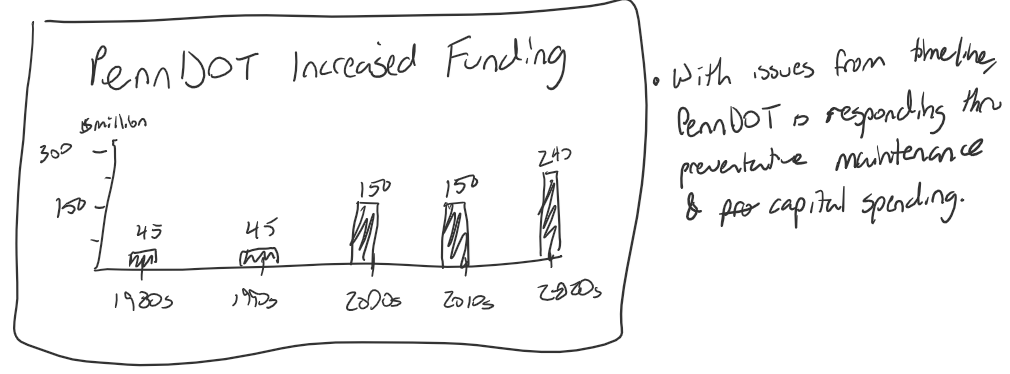 PennDOT Increased Funding
$million
300
150
45
45
150
150
240
1980s
1990s
2000s
2010s
2020s
• With issues from timeline,
PennDOT is responding thru
preventative maintenance
& capital spending.